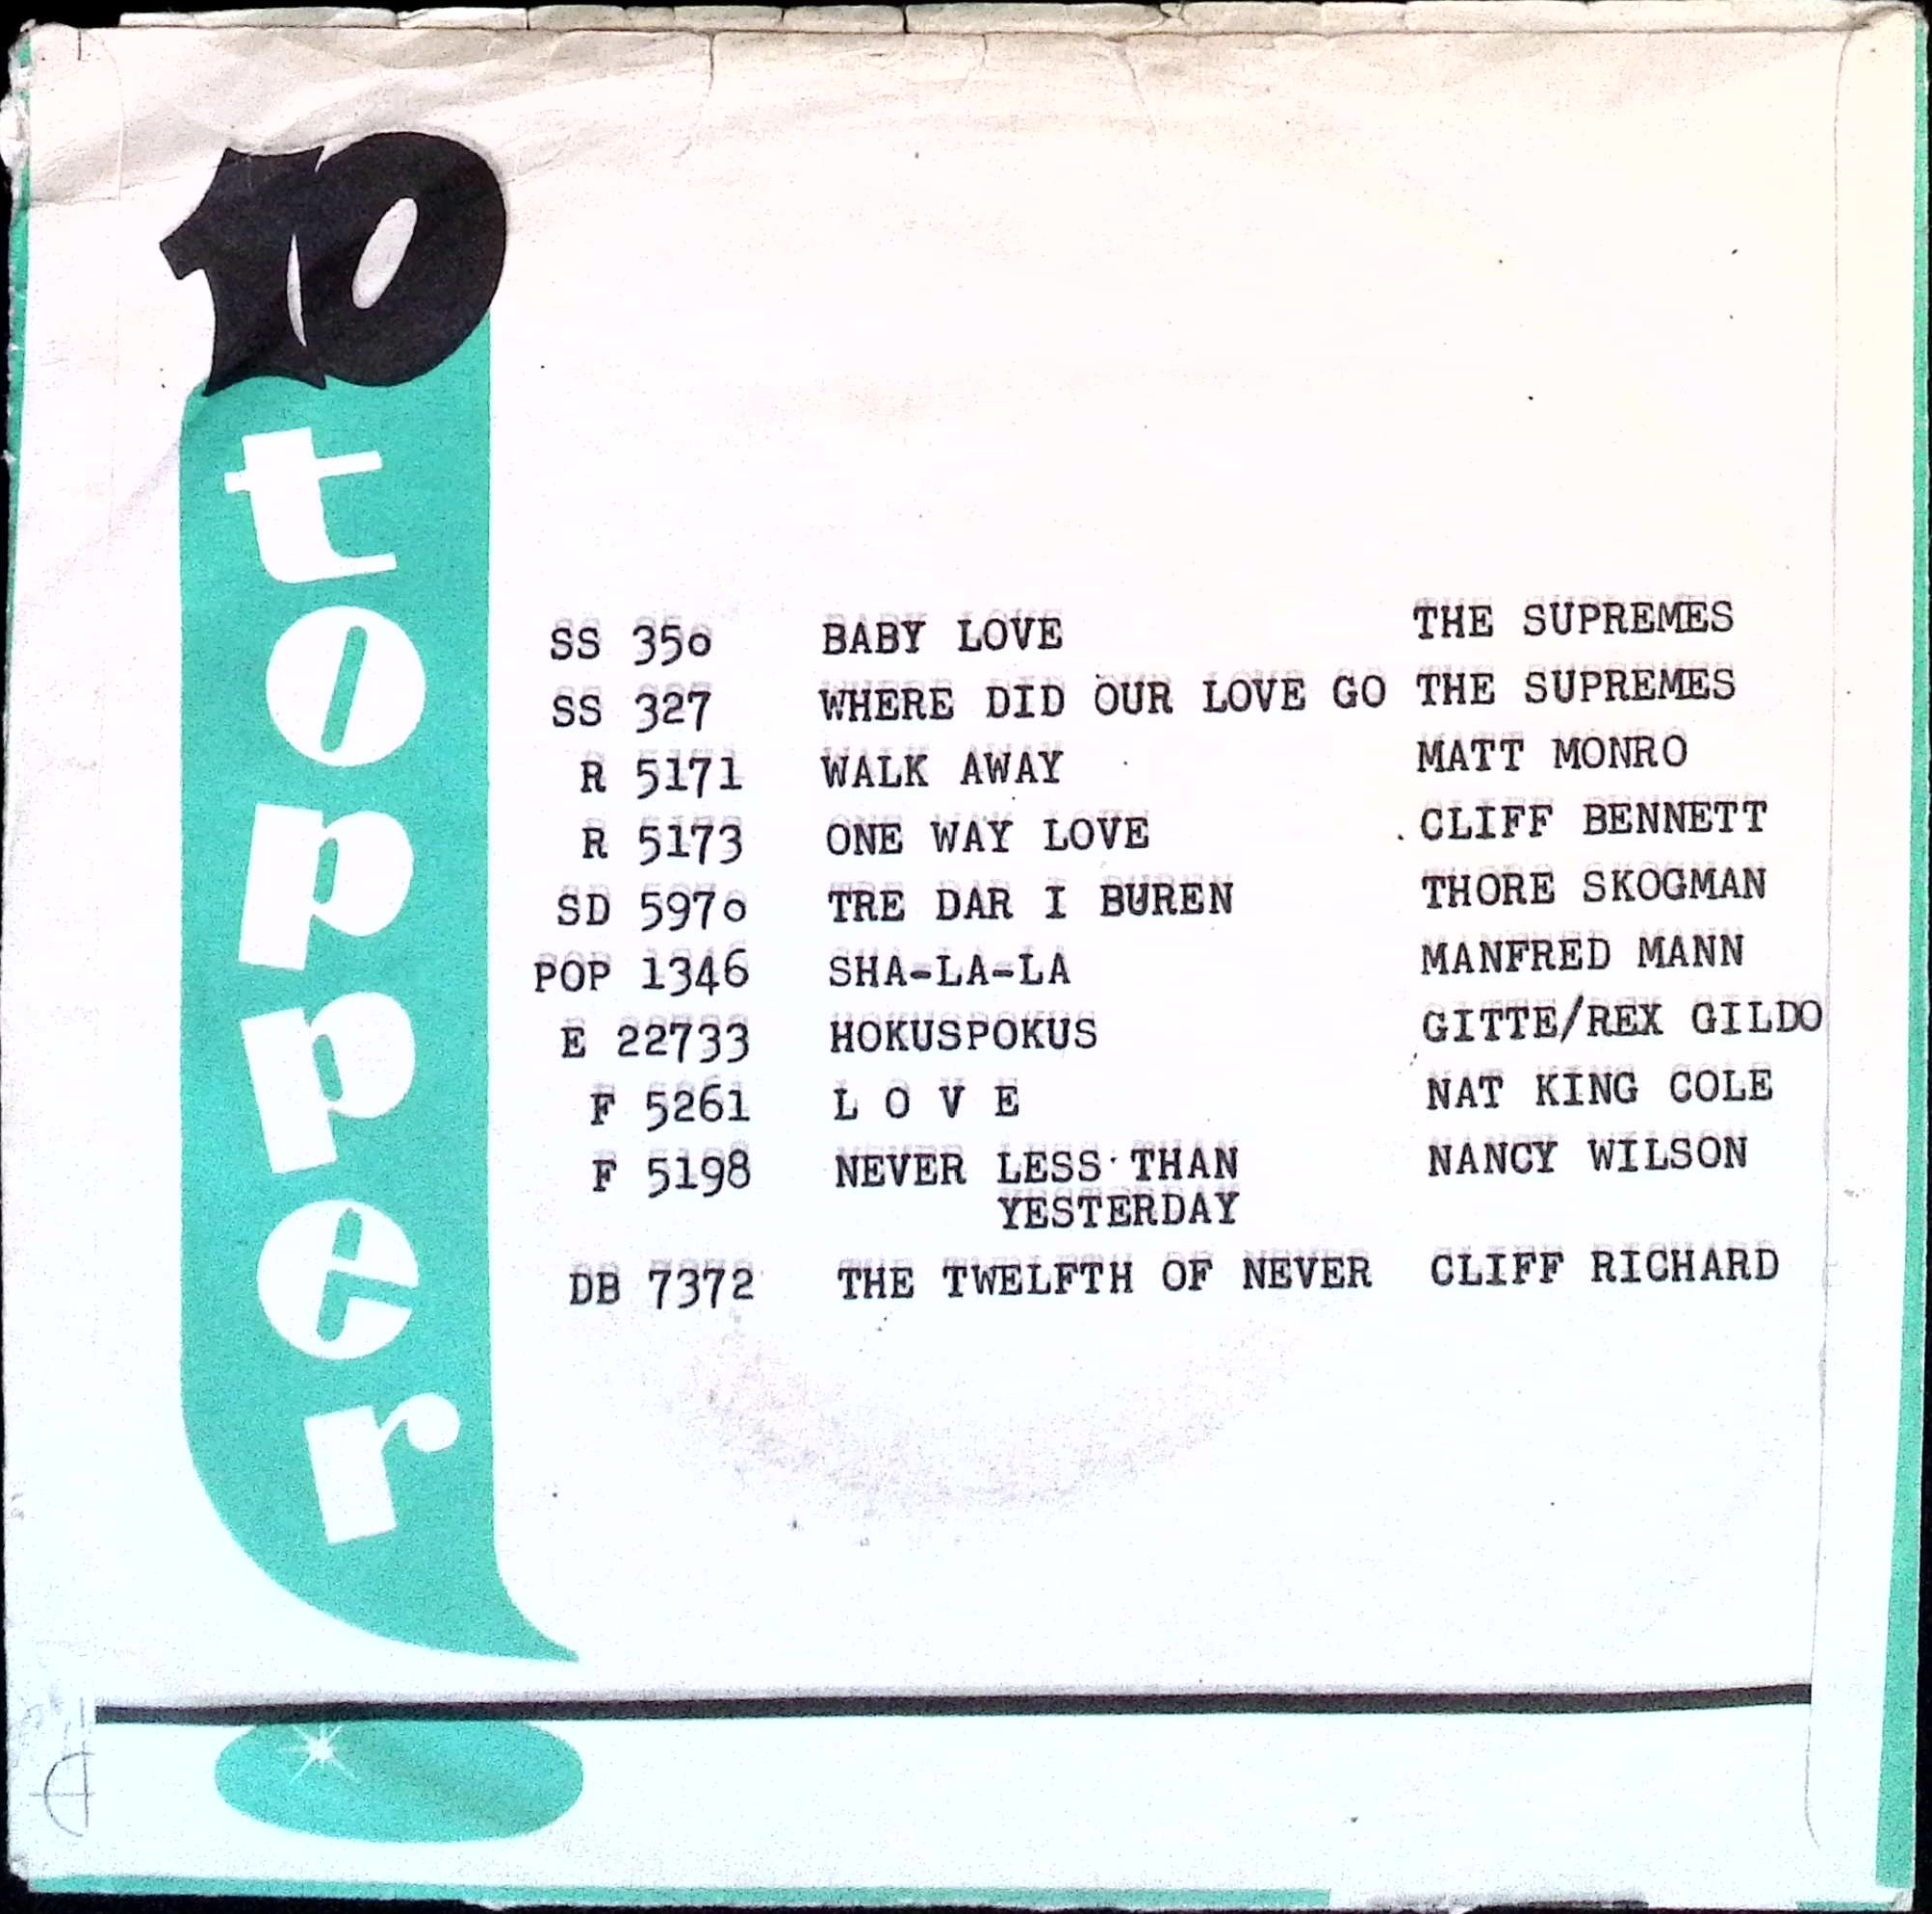 10
topper
SS 350 BABY LOVE THE SUPREMES
SS 327 WHERE DID OUR LOVE GO THE SUPREMES
R 5171 WALK AWAY MATT MONRO
R 5173 ONE WAY LOVE CLIFF BENNETT
SD 5970 TRE DAR I BUREN THORE SKOGMAN
POP 1346 SHA-LA-LA MANFRED MANN
E 22733 HOKUSPOKUS GITTE/REX GILDO
F 5261 L O V E NAT KING COLE
F 5198 NEVER LESS THAN NANCY WILSON
YESTERDAY
DB 7372 THE TWELFTH OF NEVER CLIFF RICHARD